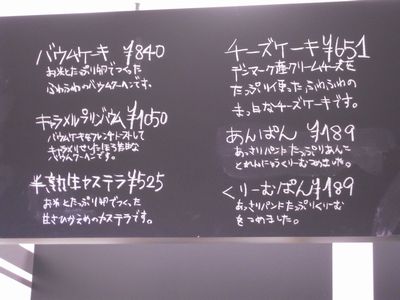 バウムケーキ ¥840
お米とたっぷり卵でつくった
ふわふわのバウムクーヘンです。
キャラメルプリンバウム ¥1050
バウムケーキをフレンチトーストして
キャラメリゼした
バウムクーヘンです。
半熟生カステラ ¥525
お米とたっぷり卵でつくった
甘さひかえめのカステラです。
チーズケーキ ¥651
デンマーク産クリームチーズを
たっぷり使ったふわふわの
まっ白なチーズケーキです。
あんぱん ¥189
あっさりパンにたっぷりあんこ
とれんにゅうくりーむつめました。
くりーむぱん ¥189
あっさりパンにたっぷりくりーむ
をつめました。